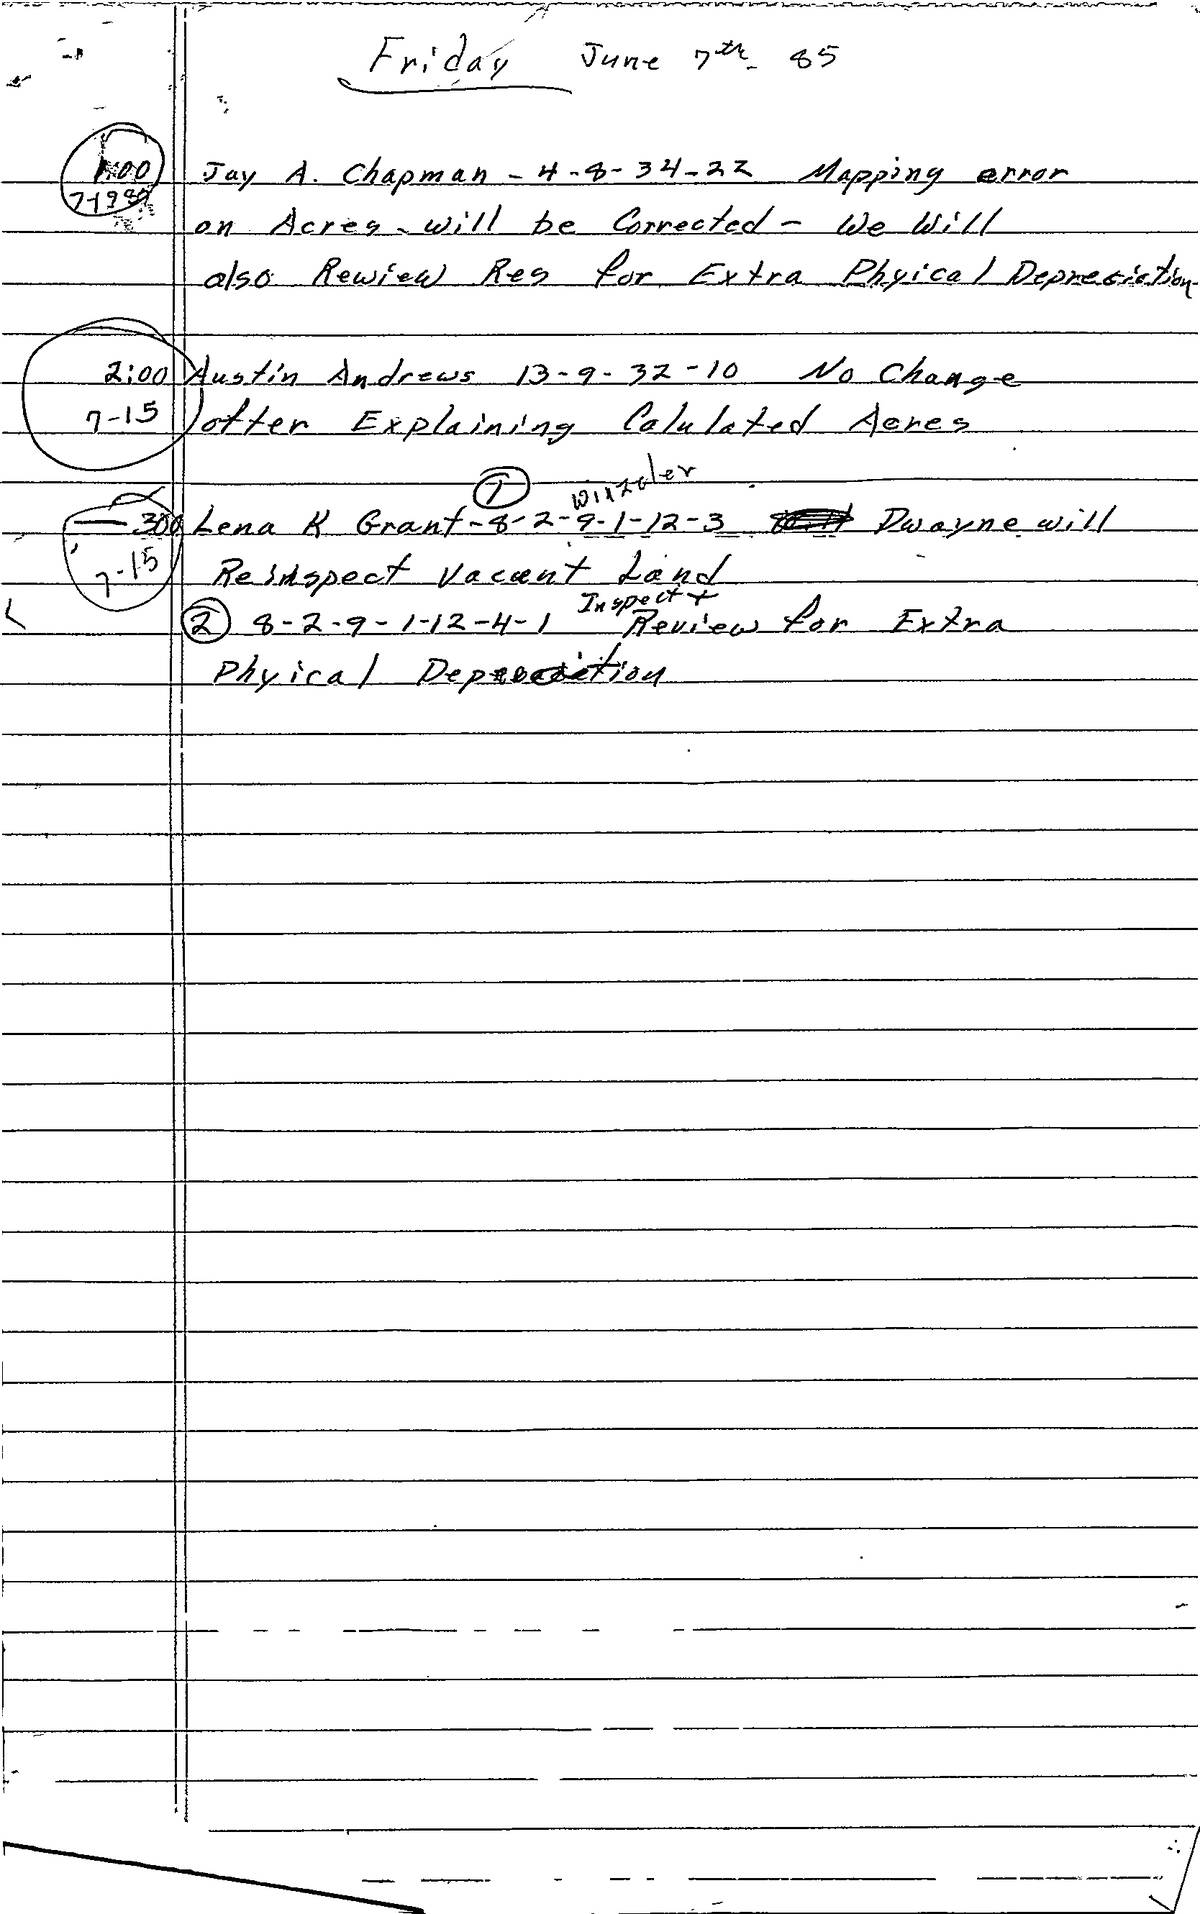 Friday June 7th - 85
1:00 Jay A. Chapman - 4-8-34-22 Mapping error
on Acres - will be Corrected - We Will
also Rewiew Res for Extra Phyical Depreciation
2:00 Austin Andrews 13-9-32-10 No Change
7-15 after Explaining Calulated Acres
① Winzeler
300 Lena K Grant - 8-2-9-1-12-3 Dwayne will
7-15 Reinspect Vacant Land
② 8-2-9-1-12-4-1 Inspect + Review for Extra
Phyical Depreciation